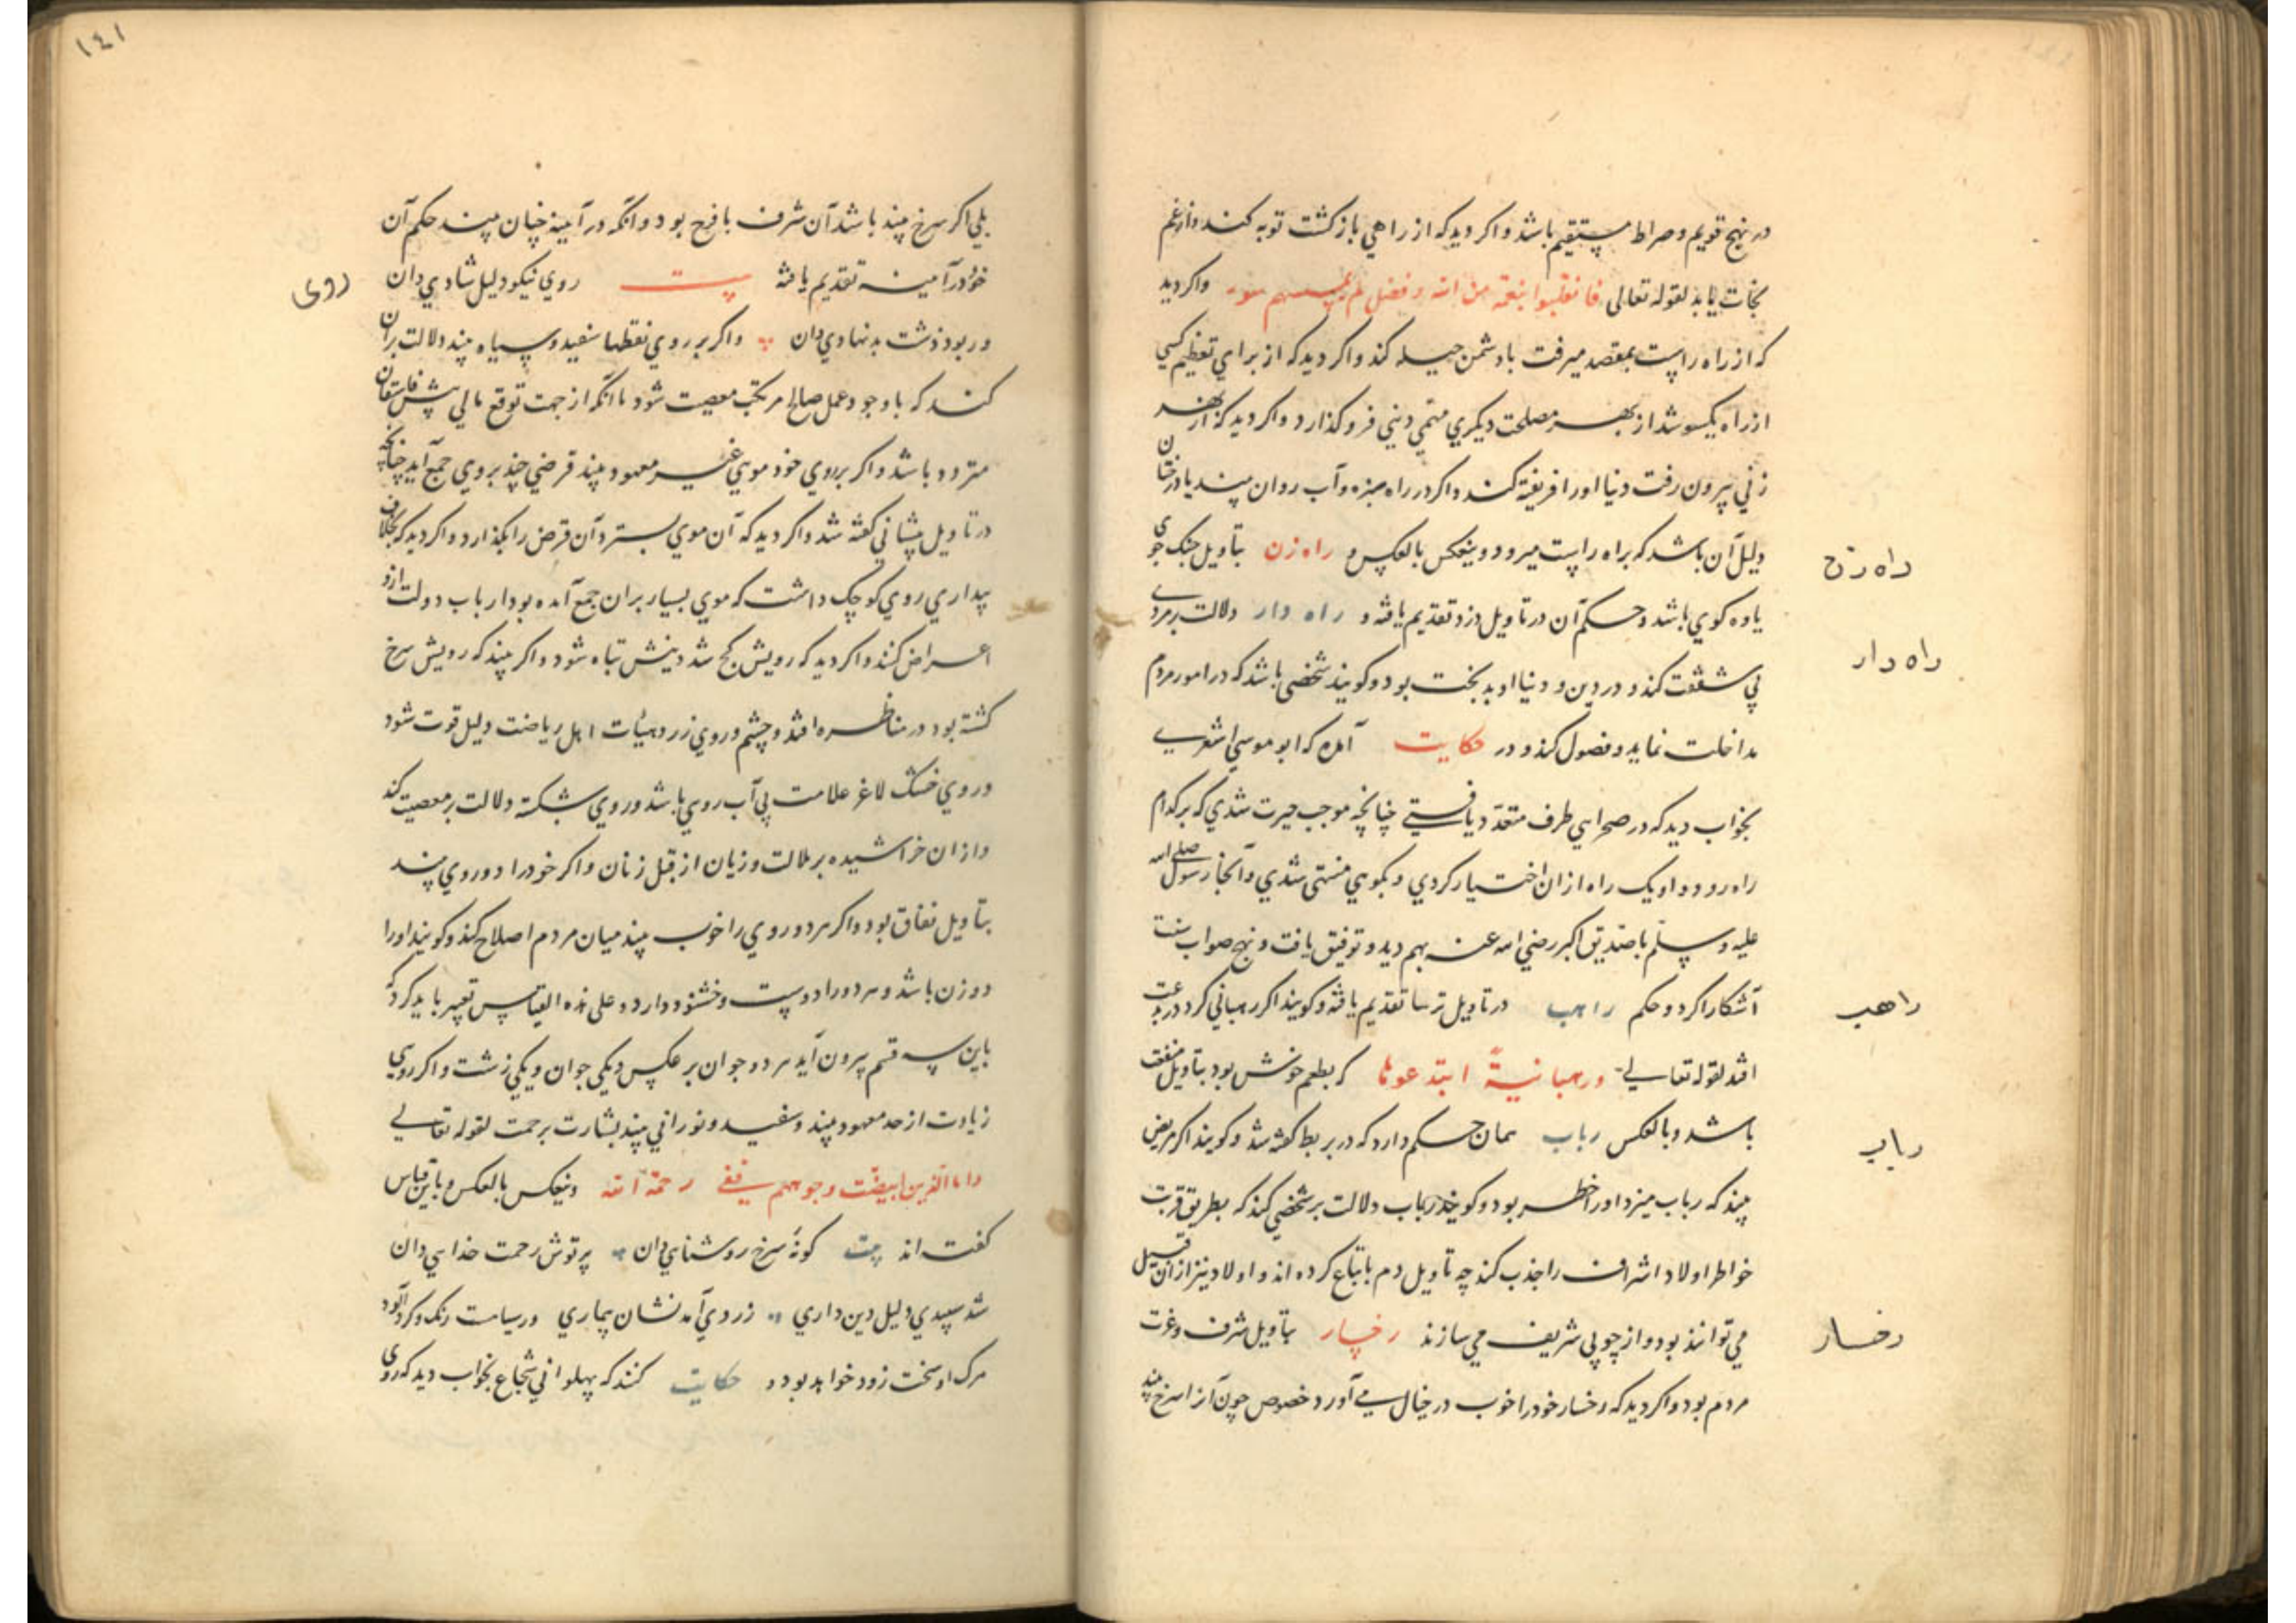 در نهج قویم و صراط مستقیم باشد و اکر دید که از راهي باز کشت توبه کند و از غم
نجات یابد لقوله تعالی فانقلبوا بنعمة من الله و فضل لم یمسسهم سوء و اکر دید
که از راه راست بمقصد میرفت با دشمن حیله کند و اکر دید که از براي تعظیم کسي
از راه یکسو شد از بهر مصلحت دیکري مهمي دیني فرو کذارد و اکر دید که از بهر
زني بیرون رفت دنیا او را فریفته کند و اکر در راه سبزه و آب روان بیند یا درختان
دلیل آن باشد که براه راست میرود و ینعکس بالعکس و راه زن بتأویل جنک جوی
راه زن
یاوه کوي باشد و حکم آن در تاویل دزد تقدیم یافته و راه دار دلالت بر مردي
راه دار
بي شفقت کند و در دین و دنیا او بدبخت بود و کویند شخصي باشد که در امور مردم
مداخلت نماید و فضول کند و در حکایت آمده که ابو موسي اشعري
بخواب دید که در صحرايي طرف متعدد یافتي چنانچه موجب حیرت شدي که بر کدام
راه رود و او یک راه از آن اختیار کردي و بکوهي منتهي شدي و آنجا رسول صلي الله
علیه و سلم با صدیق اکبر رضي الله عنه بهم دید و توفیق یافت و نهج صواب سنت
آشکارا کرد و حکم راهب در تاویل ترسا تقدیم یافته و کویند اکر رهباني کرد در بدعت
راهب
افتد لقوله تعالي و رهبانیة ابتدعوها که بطعم خوش بود بتاویل منفعت
باشد و بالعکس رباب همان حکم دارد که در بربط کفته شد و کویند اکر مریض
رباب
بیند که رباب میزد او را خطر بود و کویند رباب دلالت بر شخصي کند که بطریق قربت
خواطر اولاد اشراف را جذب کند چه تاویل دم باتباع کرده اند و اولاد نیز از آن قبیل
مي توانند بود و از چوبي شریف مي سازند رخسار بتأویل شرف و عزت
رخسار
مردم بود و اکر دید که رخسار خود را خوب در خیال مي آورد خصوص چون آنرا سرخ بیند
١٤١
بلي اکر سرخ بیند باشد آن شرف با فرح بود و آنکه در آیینه چنان بیند حکم آن
خود در آیینه تقدیم یافته بیت روي نیکو دلیل شادي دان
روی
ور بود زشت بدنهادي دان و اکر بر روي نقطها سفید و سیاه بیند دلالت بر آن
کند که با وجود عمل صالح مرتکب معصیت شود یا آنکه از جهت توقع مالي پیش فاسقان
متردد باشد و اکر بر روي خود مويي غیر معهود بیند قرضي چند بر وي جمع آید چنانچه
در تاویل پیشاني کفته شد و اکر دید که آن موي بسترد آن قرض را بکذارد و اکر دید که بخلاف
بیداري روي کوچک داشت که موي بسیار بر آن جمع آمده بود ارباب دولت ازو
اعراض کنند و اکر دید که رویش کج شد دینش تباه شود و اکر بیند که رویش سرخ
کشته بود در مناظره افتد و چشم و روي زرد و هیأت اهل ریاضت دلیل قوت شود
و روي خشک لاغر علامت بي آب رویي باشد و روي شکسته دلالت بر معصیت کند
و از آن خراشیده بر ملالت و زیان از قبل زنان و اکر خود را دو روي بیند
بتأویل نفاق بود و اکر هر دو روي را خوب بیند میان مردم اصلاح کند و کویند او را
دو زن باشد و هر دو را دوست و خشنود دارد و علی هذه القیاس تعبیر باید کرد که
باین سه قسم بیرون آید هر دو جوان بر عکس و یکي جوان و یکي زشت و اکر روي
زیادت از حد معهود بیند و سفید و نوراني بیند بشارت بر حمت لقوله تعالي
و اما الذین ابیضت وجوههم ففي رحمة الله و ینعکس بالعکس و باین قیاس
کفته اند بیت کونه سرخ روشنايي دان پرتوش رحمت خدايي دان
شد سپیدي دلیل دین داري زردي آمد نشان بیماري ور سیاست رنک و کرد آلود
مرک او سخت زود خواهد بود و حکایت کنند که پهلواني شجاع بخواب دید که روی